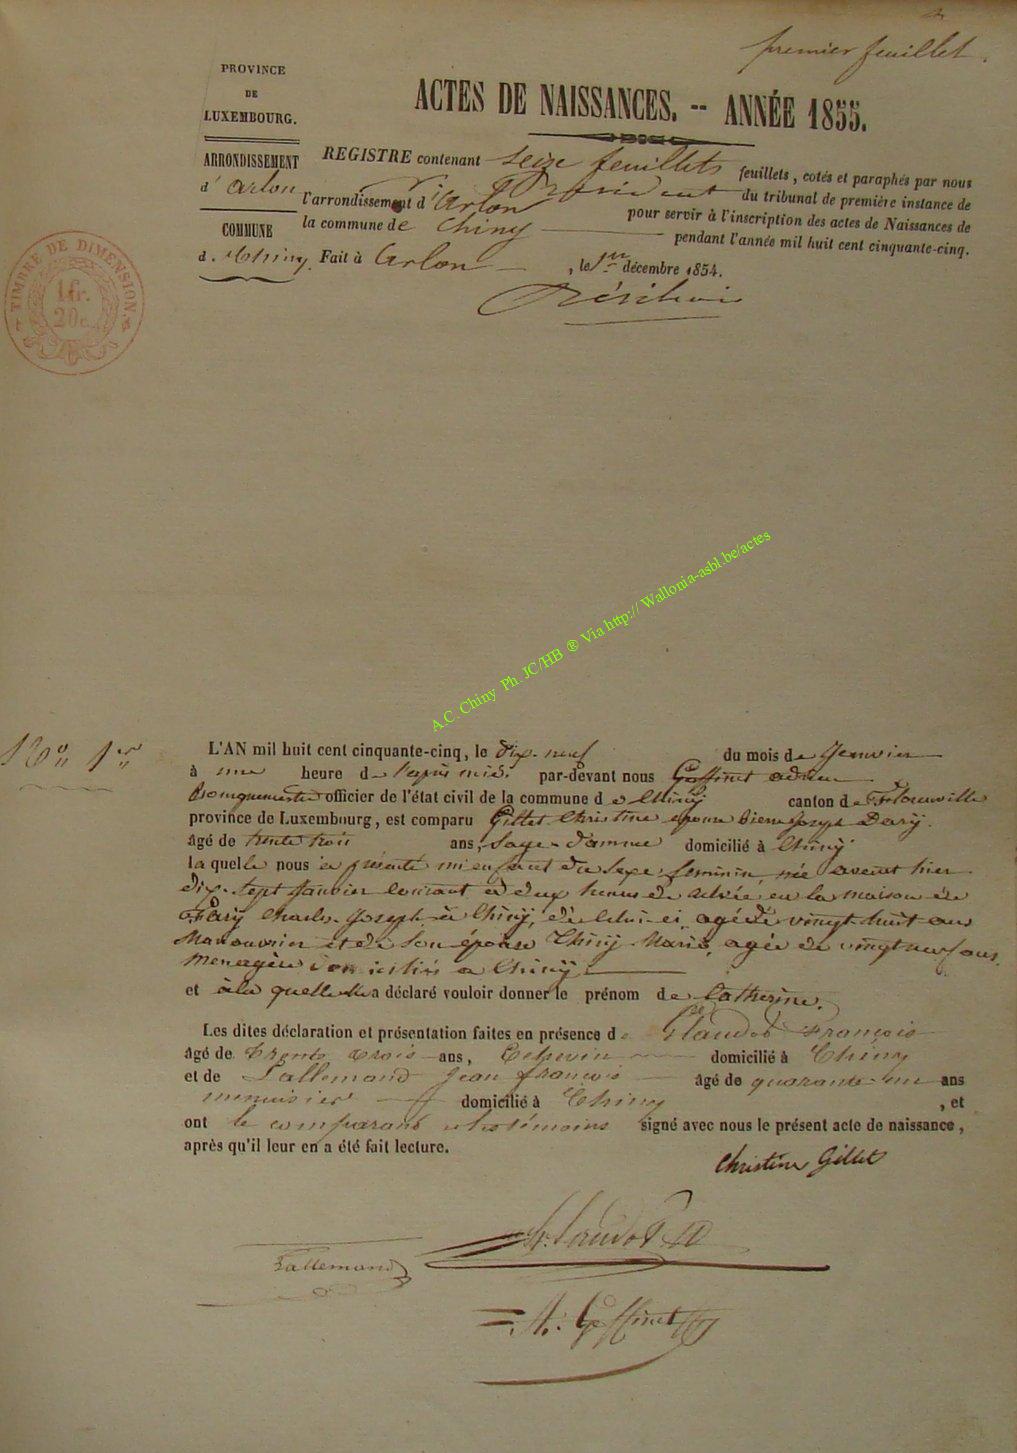 premier feuillet.
PROVINCE
DE
LUXEMBOURG.
ACTES DE NAISSANCES. -- ANNÉE 1855.
ARRONDISSEMENT
d' Arlon
COMMUNE
d. Chiny.
REGISTRE contenant seize feuillets feuillets, cotés et paraphés par nous
Président du tribunal de première instance de
l'arrondissement d'Arlon pour servir à l'inscription des actes de Naissances de
la commune de Chiny pendant l'année mil huit cent cinquante-cinq.
Fait à Arlon, le 1er décembre 1854.
TIMBRE DE DIMENSION.
1 fr.
20 c.
A.C. Chiny Ph. JC/HB ® Via http:// Wallonia-asbl.be/actes
No 1er
L'AN mil huit cent cinquante-cinq, le dix-neuf du mois de Janvier
à une heure de l'après midi par-devant nous Goffinet adrien
Bourguemestre officier de l'état civil de la commune de Chiny canton de Florenville
province de Luxembourg, est comparu Gillet Christine épouse Pierre Joseph
âgé de trente trois ans, Sage-damme domicilié à Chiny
la quelle nous a présenté un enfant du sexe feminin, née avant hier
dix-sept Janvier courant à deux heures de en la maison de
Charles Joseph à Chiny, de celui ci, agé de vingt huit ans
Manouvrier et de son épouse Chiny Marie, agée de vingt neuf ans,
menagère domiciliés a Chiny
et à la quelle elle a déclaré vouloir donner le prénom de Catherine.
Les dites déclaration et présentation faites en présence de Glaudot François
âgé de Trente trois ans, Echevin domicilié à Chiny
et de Lallemand Jean françois âgé de quarante-un ans
menuisier domicilié à Chiny, et
ont le comparant et les témoins signé avec nous le présent acte de naissance,
après qu'il leur en a été fait lecture.
Christine Gillet
Lallemand
A. Goffinet